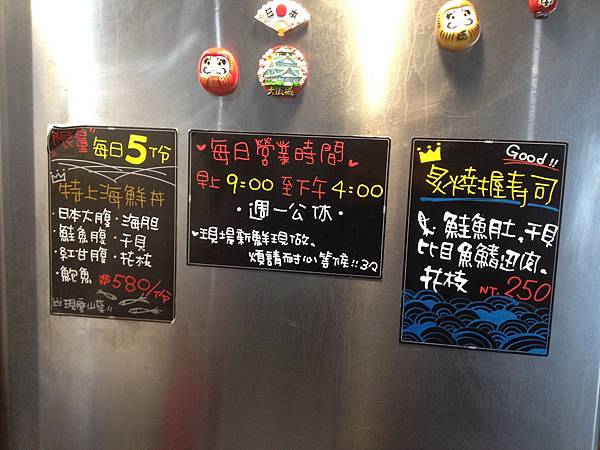 限量 每日5份
特上海鮮丼
·日本大腹·海胆
·鮭魚腹·干貝
·紅甘腹·花枝
·鮑魚 $580/份
現磨山葵!!
每日營業時間
早上 9:00 至下午 4:00
·週一公休·
現場新鮮現做、
煩請耐心等候!!
Good!!
炙燒握寿司
鮭魚肚、干貝
比目魚鰭边肉、
花枝 NT. 250